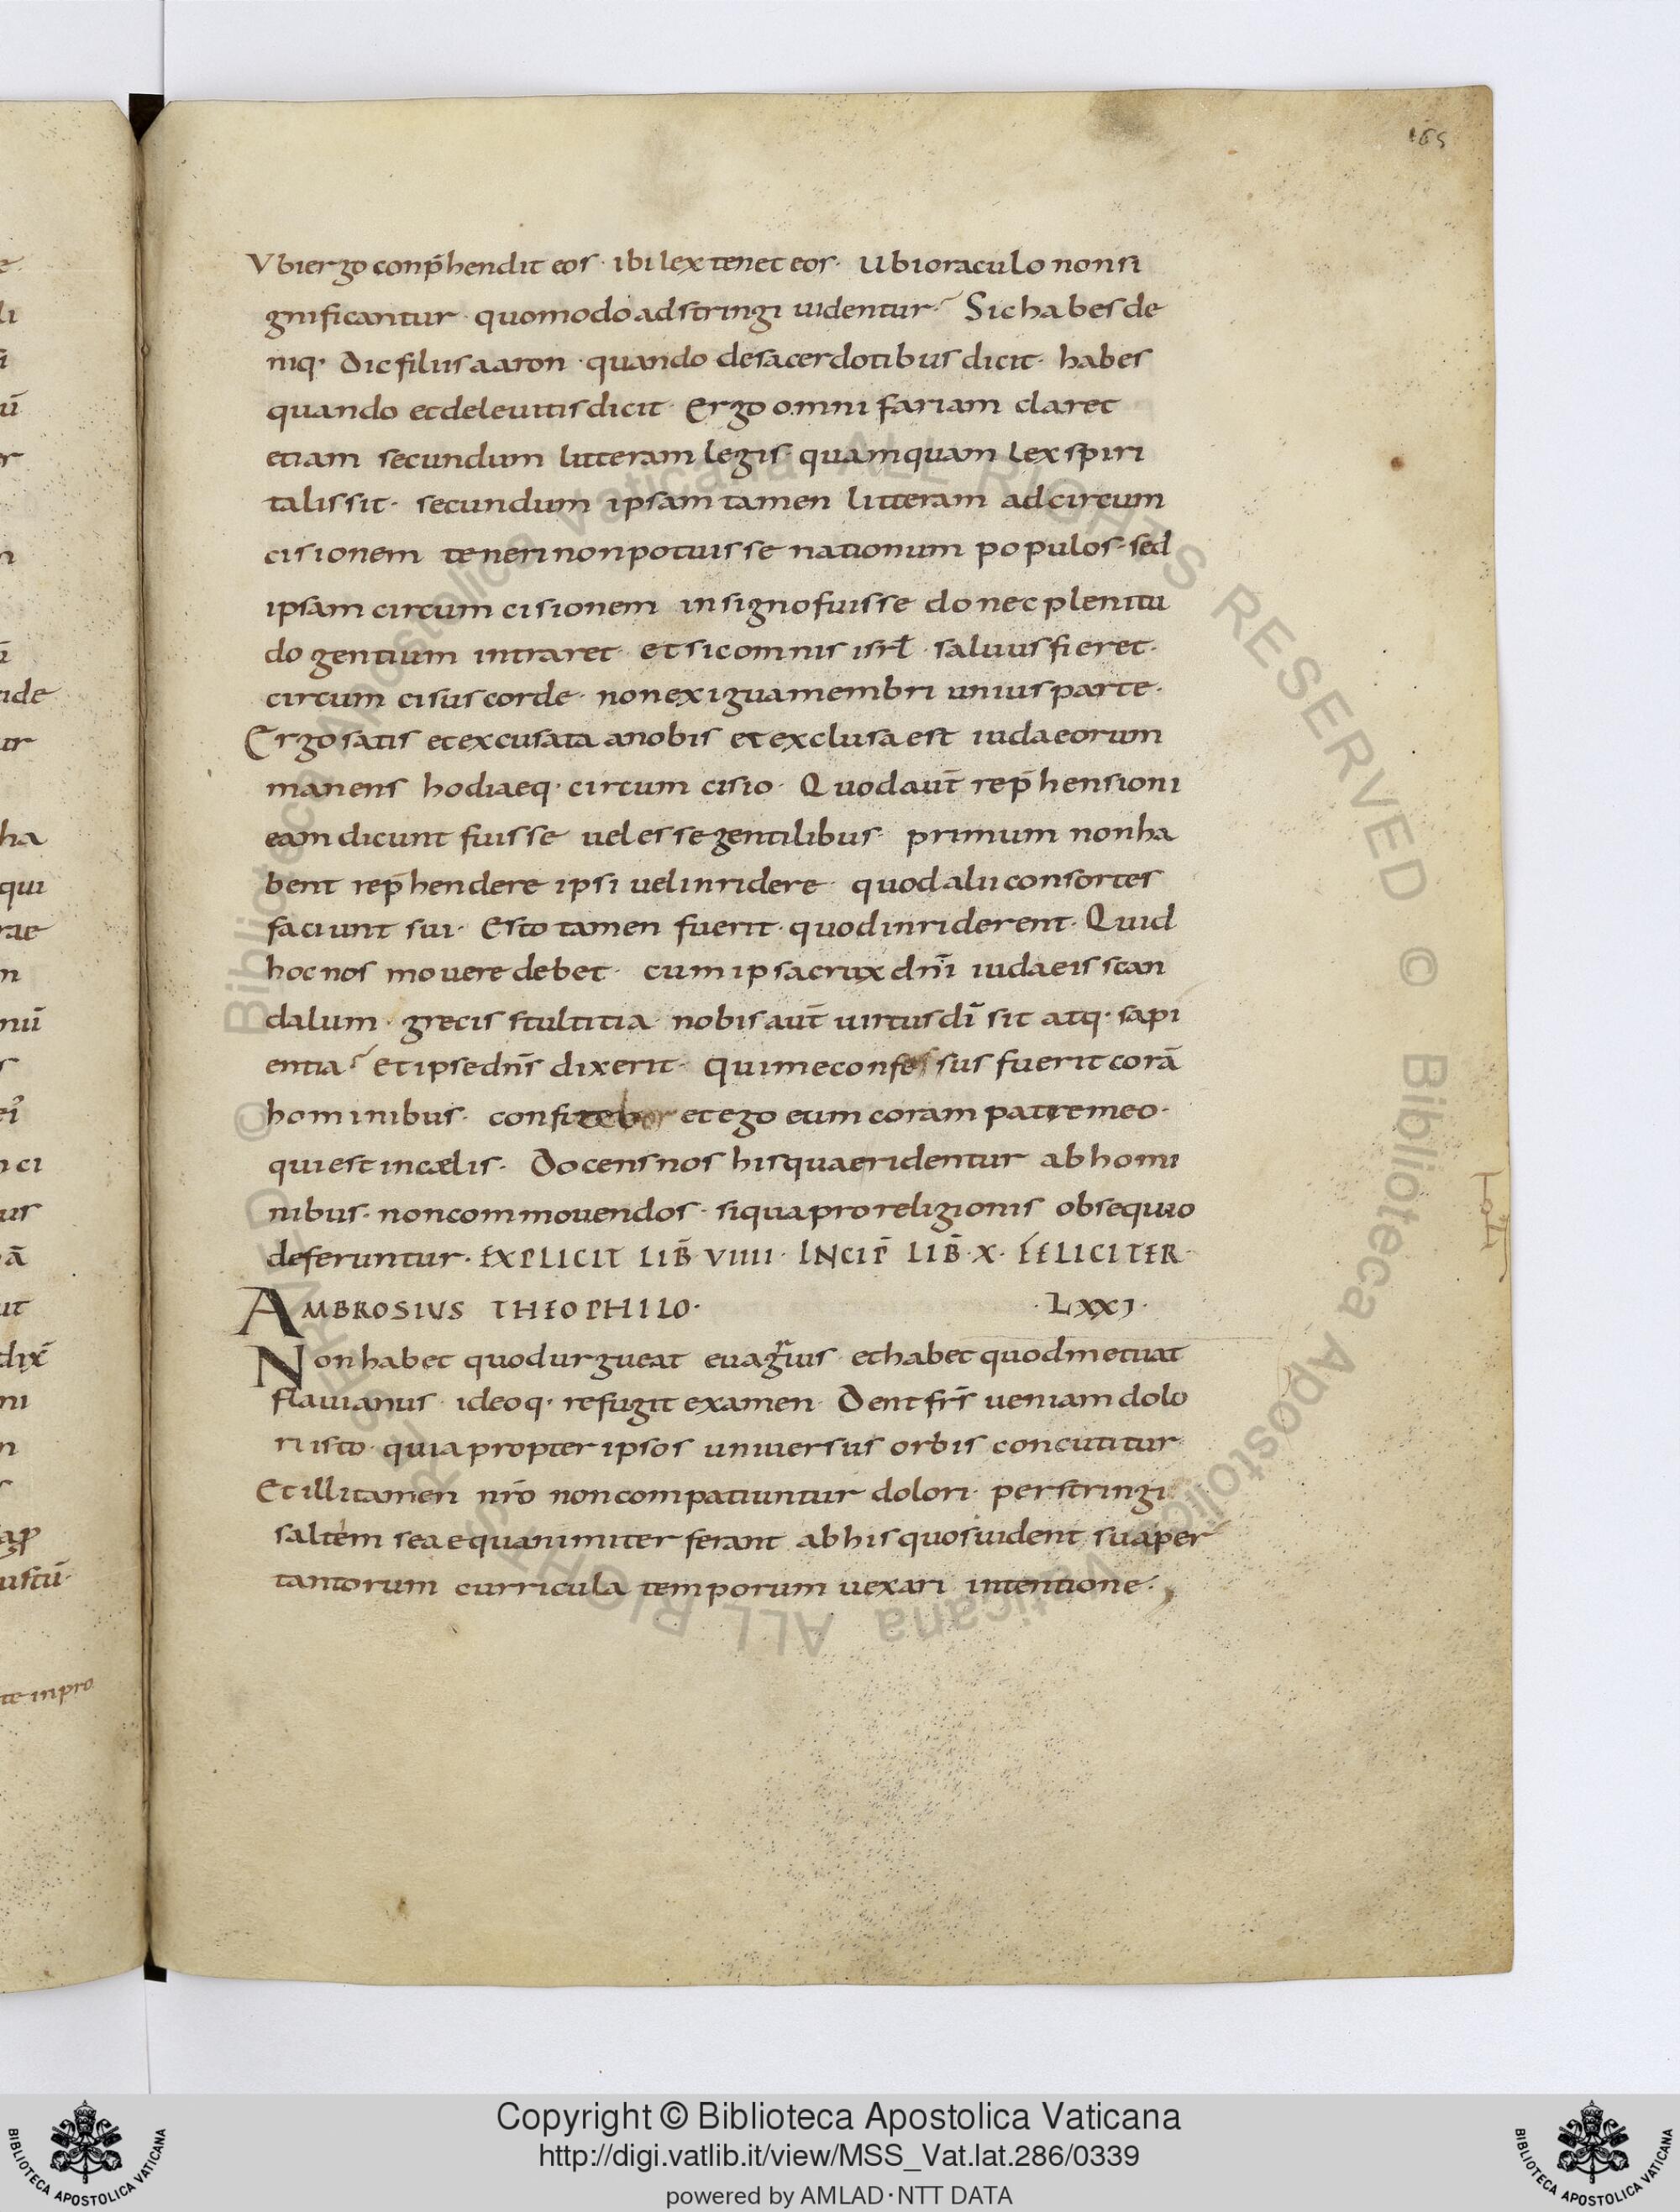 165
Vbi ergo conp̄hendit eos · ibi lex tenet eos · Ubi oraculo non si
gnificantur · quomodo adstringi uidentur · Sic habes de
niq· dic filiis aaron · quando de sacerdotibus dicit · habes
quando et de leuitis dicit · Ergo omni fariam claret
etiam secundum litteram legis · quamquam lex spiri
talis sit · secundum ipsam tamen litteram ad circum
cisionem teneri non potuisse nationum populos · sed
ipsam circum cisionem in signo fuisse donec plenitu
do gentium intraret · et sic omnis isrł · saluus fieret ·
circum cisus corde · non exigua membri unius parte ·
Ergo satis et excusata a nobis et exclusa est iudaeorum
manens hodiaeq· circum cisio · Quod aut̄ rep̄hensioni
eam dicunt fuisse uel esse gentilibus · primum non ha
bent rep̄hendere ipsi uel inridere · quod alii consortes
faciunt sui · Esto tamen fuerit · quod inriderent · Quid
hoc nos mouere debet · cum ipsa crux dn̄i iudaeis scan
dalum · grecis stultitia nobis aut̄ uirtus dī sit atq· sapi
entia · Et ipse dn̄s dixerit · Qui me confessus fuerit corā
hominibus · confitebor et ego eum coram patre meo ·
qui est in cælis · Docens nos his quae ridentur ab homi
nibus · non commouendos · si qua pro religionis obsequio
deferuntur · EXPLICIT LIB̄ VIIII · INCIP̄ LIB̄ · X · FELICITER ·
AMBROSIUS THEOPHILO · · LXXI ·
Non habet quod urgueat euagrius et habet quod metuat
flauianus · ideoq· refugit examen · Dent frs̄ ueniam dolo
ri isto · quia propter ipsos uniuersus orbis concutitur
Et illi tamen nr̄o non compatiuntur dolori · perstringi
saltem se aequanimiter ferant ab his quos uident sua per
tantorum curricula temporum uexari intentione ·
e
li
ū
r
n
ide
tr
ha
qui
rae
n
nū
s
ci
us
ā
ut
dix̄
ni
n
ustū ·
te in pro
© Biblioteca Apostolica Vaticana ALL RIGHTS RESERVED © Biblioteca Apostolica Vaticana ALL RIGHTS RESERVED
Copyright © Biblioteca Apostolica Vaticana
http://digi.vatlib.it/view/MSS_Vat.lat.286/0339
powered by AMLAD·NTT DATA
BIBLIOTECA APOSTOLICA VATICANA
BIBLIOTECA APOSTOLICA VATICANA